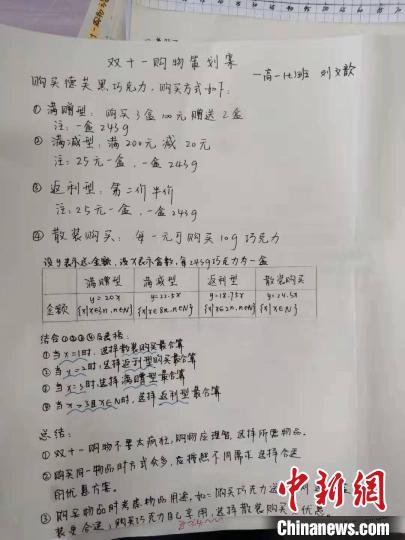 双十一购物策划案
一高一(七)班 刘文歆
购买德芙黑巧克力，购买方式如下：
① 满赠型：购买3盒100元赠送2盒
注：一盒243g
② 满减型：满200元减20元
注：25元一盒，一盒243g
③ 返利型：第二件半价
注：25元一盒，一盒243g
④ 散装购买：每一元可购买10g巧克力
设y表示总金额，设x表示盒数，每243g巧克力为一盒
满赠型 满减型 返利型 散装购买
金额 y=20x y=22.5x y=18.75x y=24.3x
{x|x∈5n,n∈N} {x|x∈8n,n∈N} {x|x∈2n,n∈N} {x|x∈N}
结合①②③④及表格：
①当x=1时，选择散装购买最合算
②当x=2时，选择返利型购买最合算
③当x=5时，选择满赠型最合算
④当x>3且x∈N时，选择返利型最合算
总结：
① 双十一购物不要太疯狂，购物应理智，选择所需物品。
② 购买同一物品时方式众多，应按照不同需求选择合适
的优惠方案。
③ 购买物品时考虑物品用途，如：购买巧克力送
装更合适；购买巧克力自己享用，选择散装购买
优惠。
中新网
www.chinanews.com